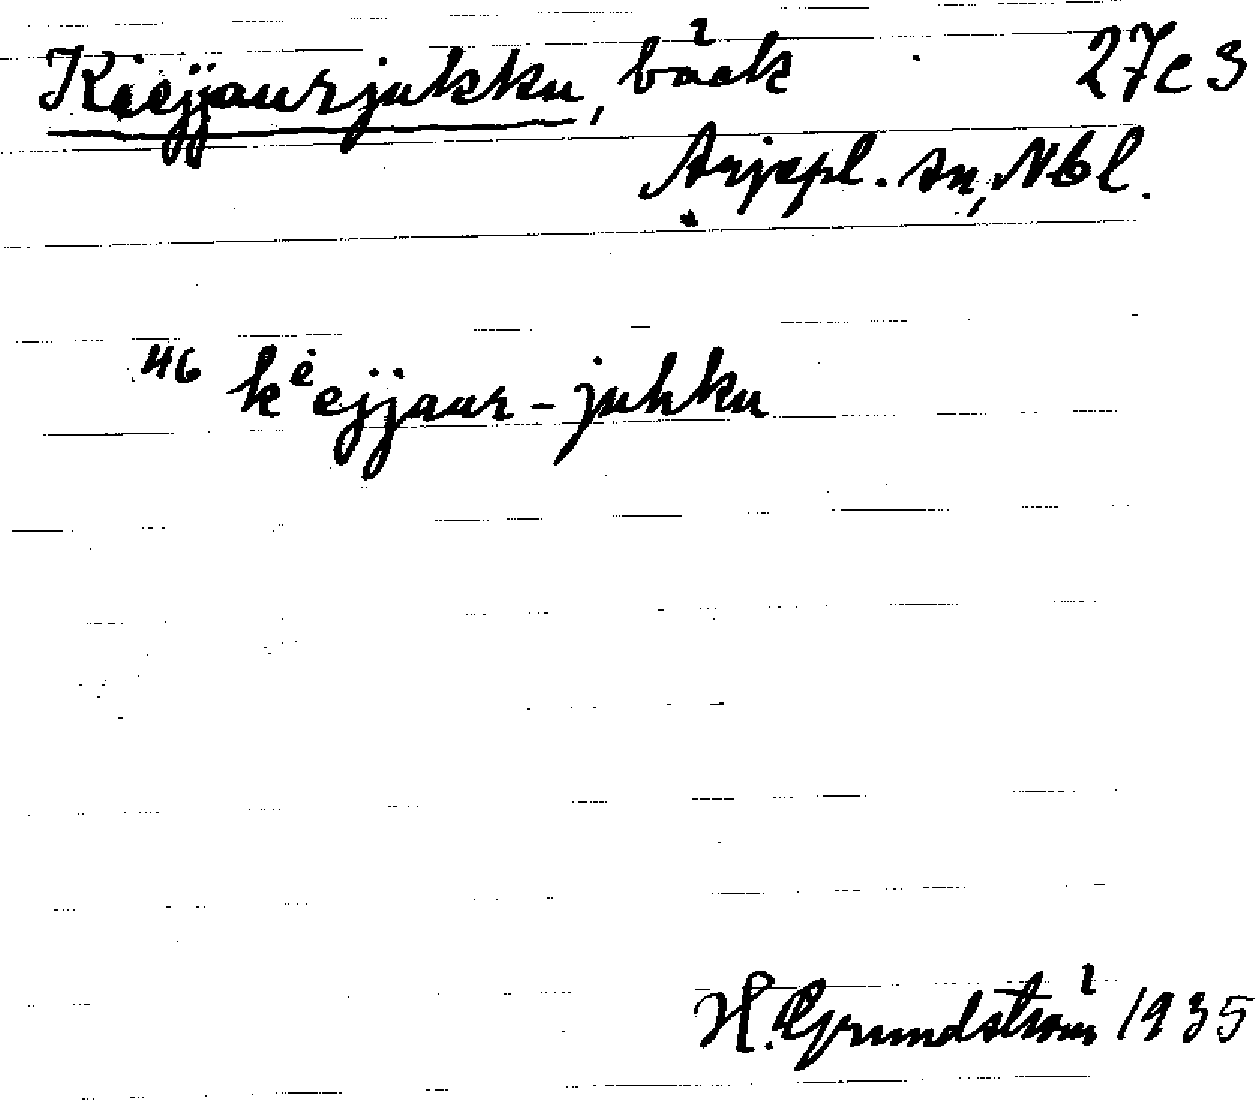 Kiejjaurjukku, bäck 27c3
Arjepl. sn, Nbl.
46 kėejjaur-juhku
H. Grundström 1935